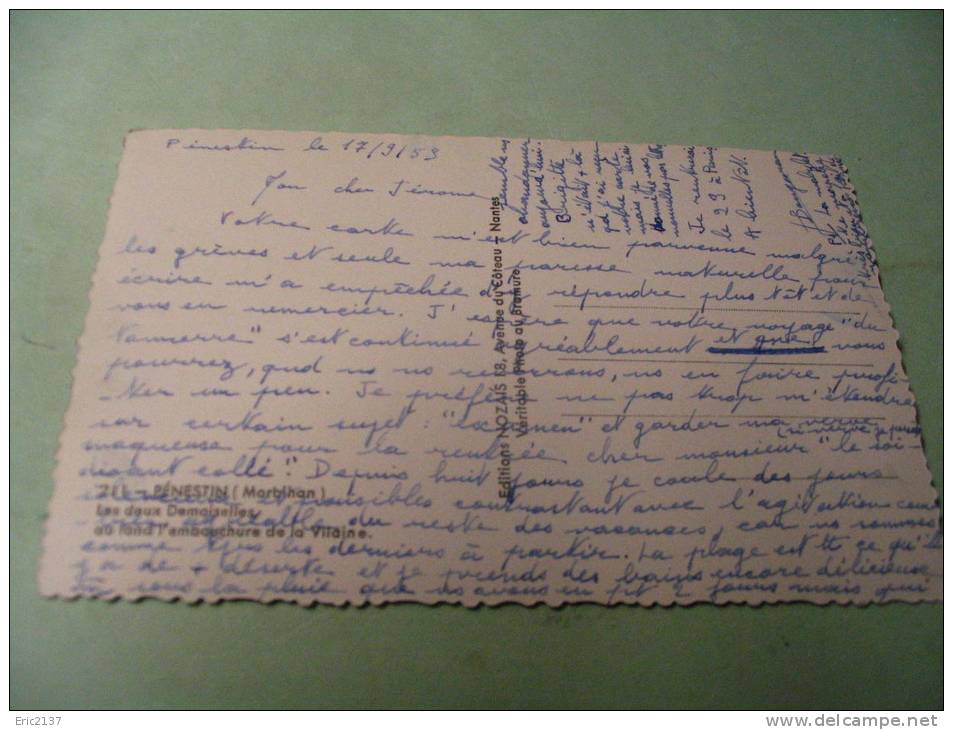 Pénestin le 17/9/53
Mon cher Jérome
Votre carte m'est bien parvenue malgré
les grèves et seule ma paresse naturelle pour
écrire m'a empêchée d'y répondre plus tôt et de
vous en remercier. J'espère que votre voyage "du
tonnerre" s'est continué agréablement et que vous
pourrez, qud ns ns reverrons, ns en faire profi-
ter un peu. Je préfère ne pas trop m'étendre
sur certain sujet: "examen" et garder ma verve
moqueuse pour la rentrée cher monsieur "le soi-
disant collé". Depuis huit jours je coule des jours
paisibles contrastant avec l'agitation
du reste des vacances, car ns sommes
comme tjrs les derniers à partir. La plage est tt ce qu'il
y a de + déserte et je prends des bains encore délicieux
sous la pluie que ns avons eu pdt 2 jours mais qui
semble
abandonner
aujourd'hui.
Brigitte
n'était + là
qd j'ai reçu
votre carte
mais je lui
donnerai vos
nouvelles
Je rentrerai
le 29 à Paris
A bientôt.
211 - PÉNESTIN (Morbihan)
Les deux Demoiselles
au fond l'embouchure de la Vilaine.
Editions NOZAIS 18, Avenue du Côteau - Nantes
Véritable Photo au Bromure
Eric2137
www.delcampe.net